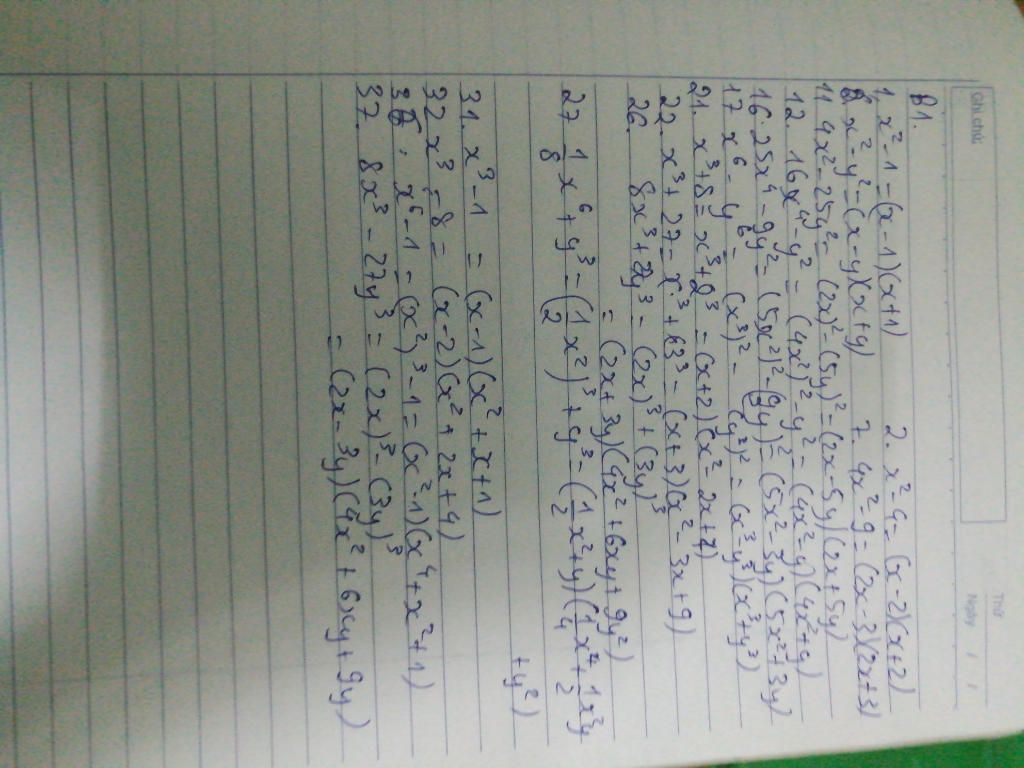 Ghi chú:
Thứ
Ngày / /
B1.
1. x² - 1 = (x - 1)(x + 1) 2. x² - 4 = (x - 2)(x + 2)
x² - y² = (x - y)(x + y) 7. 4x² - 9 = (2x - 3)(2x + 3)
11. 4x² - 25y² = (2x)² - (5y)² = (2x - 5y)(2x + 5y)
12. 16x⁴ - y² = (4x²)² - y² = (4x² - y)(4x² + y)
16. 25x⁴ - 9y² = (5x²)² - (3y)² = (5x² - 3y)(5x² + 3y)
17. x⁶ - y⁶ = (x³)² - (y³)² = (x³ - y³)(x³ + y³)
21. x³ + 8 = x³ + 2³ = (x + 2)(x² - 2x + 4)
22. x³ + 27 = x³ + 3³ = (x + 3)(x² - 3x + 9)
26. 8x³ + 27y³ = (2x)³ + (3y)³
= (2x + 3y)(4x² + 6xy + 9y²)
27. 1/8 x⁶ + y³ = (1/2 x²)³ + y³ = (1/2 x² + y)(1/4 x⁴ + 1/2 x²y
+ y²)
31. x³ - 1 = (x - 1)(x² + x + 1)
32. x³ - 8 = (x - 2)(x² + 2x + 4)
36. x⁶ - 1 = (x²)³ - 1 = (x² - 1)(x⁴ + x² + 1)
37. 8x³ - 27y³ = (2x)³ - (3y)³
= (2x - 3y)(4x² + 6xy + 9y)